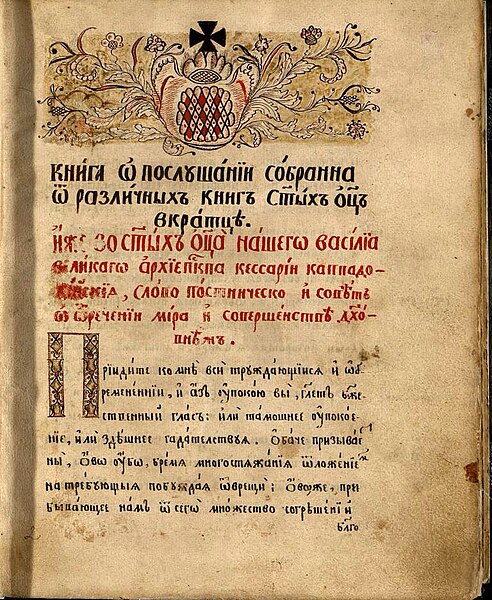 КНИ́ГА Ѽ ПОСЛꙊША́НЇИ СО́БРАННА
Ѿ РАЗЛИ́ЧНЫХЪ КНИГЪ СТ҃ЫХЪ Ѻ҆Ц҃Ъ
ВКРА́ТЦѢ.
И҆́ЖЕ ВО СТ҃ЫХЪ Ѻ҆Ц҃А̀ НА́ШЕГѠ ВАСИ́ЛЇА
ВЕЛИ́КАГѠ А҆РХЇЕП҃КПА КЕССАРІ́И КАППАДО-
КІ́ЙСКІѦ, СЛО́ВО ПО́СТНИЧЕСКО И҆ СОВѢ́ТЪ
Ѽ Ѿ́РЕЧЕНЇИ МІ́РА И҆ СОВЕРШЕ́НСТВѢ ДХ҃О́-
ВНѢМЪ.
Прїиди́те ко мнѣ̀ всѝ трꙋжда́ющїисѧ и҆ ѡ҆б-
ремене́ннїи, и҆ а҆́зъ ᲂу҆поко́ю вы̀, гл҃етъ бж҃е-
ственный гла́съ: и҆лѝ та́мошнее ᲂу҆покое́-
нїе, и҆лѝ здѣ́шнее гада́телствꙋѧ. Ѻ҆ба́че призыва́е
ны̀, ѻ҆́вѡ ᲂу҆́бѡ, бре́мѧ многостѧжа́нїѧ ѿложе́нїе
на тре́бꙋющыѧ побꙋжда́ѧ ѿврещѝ: ѻ҆́вѡже, при
быва́ющее на́мъ ѿ сегѡ̀ мно́жество согрѣше́нїй и҆
бл҃го